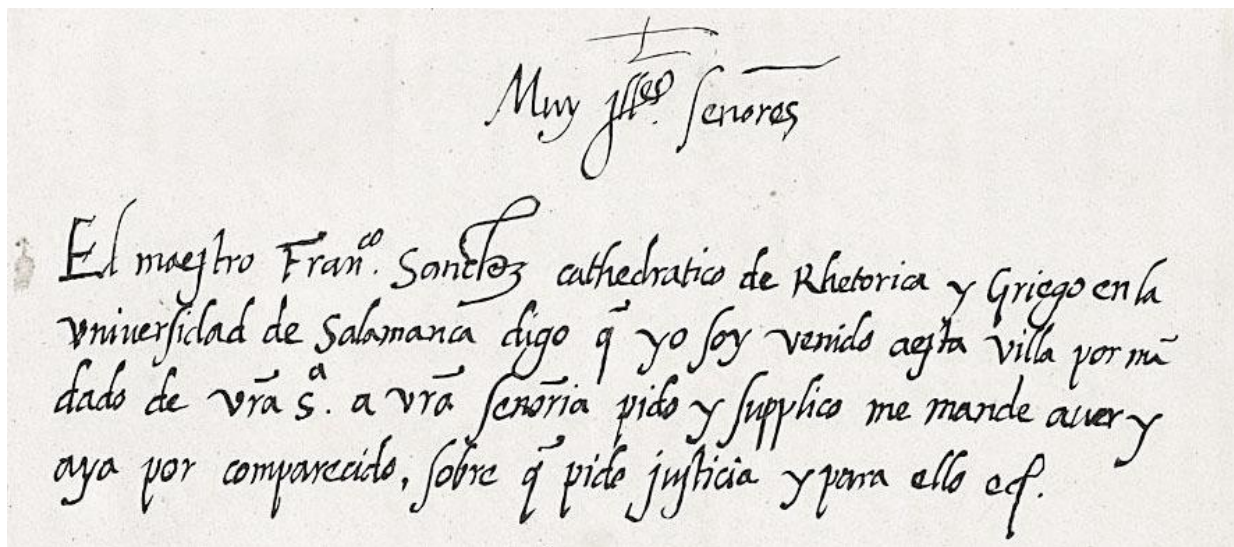 Muy Illes. señores
El maestro Franco. Sanchez cathedratico de Rhetorica y Griego en la
vniuersidad de Salamanca digo q̃ yo soy venido aesta villa por mã
dado de vrã Sa. a vrã señoria pido y supplico me mande auer y
aya por comparecido, sobre q̃ pide justicia y para ello